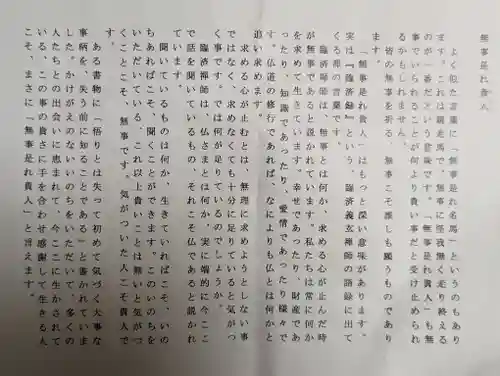 無事是れ貴人
よく似た言葉に「無事是れ名馬」というのもあり
ます。これは競走馬で、無事に怪我無く走り終える
のが一番だという意味です。「無事是れ貴人」も無
事でいられることが、何より貴い事だと受け止められ
るかもしれません。
皆の無事を祈る。無事こそ誰しも願うものであり
ます。
「無事是れ貴人」はもっと深い意味があります。
実は『臨済録』という、臨済義玄禅師の語録に出て
くる禅の言葉です。
臨済禅師は、無事とは何か、求める心が止んだ時
が無事であると説かれています。私たちは常に何か
を求めて生きています。幸せであったり、財産であ
ったり、知識であったり、愛情であったり様々で
す。仏道の修行であれば、なによりも仏とは何かと
追い求めます。
求める心が止むとは、無理に求めようとしない事
ではなく、求めなくても十分に足りていると気がつ
く事です。では何が足りているのでしょうか。
臨済禅師は、仏さまとは何か、実に端的に今ここ
で話を聞いているもの、それこそ仏であると説かれ
ています。
聞いているものは何か、生きていればこそ、いの
ちあればこそ、聞くことができます。このいのちを
いただいている、これ以上貴いことは無いと気がつ
くことこそ、無事です。気がついた人こそ貴人で
す。
ある書物に「悟りとは失って初めて気づく大事な
事柄を、失う前に知ることである」と書かれていま
した。かけがえのないいのちをいただいて、多くの
人たちとの出会いに恵まれて、今ここに生かされて
いる、この事の貴さに手を合わせ感謝して生きる人
こそ、まさに「無事是れ貴人」と言えます。